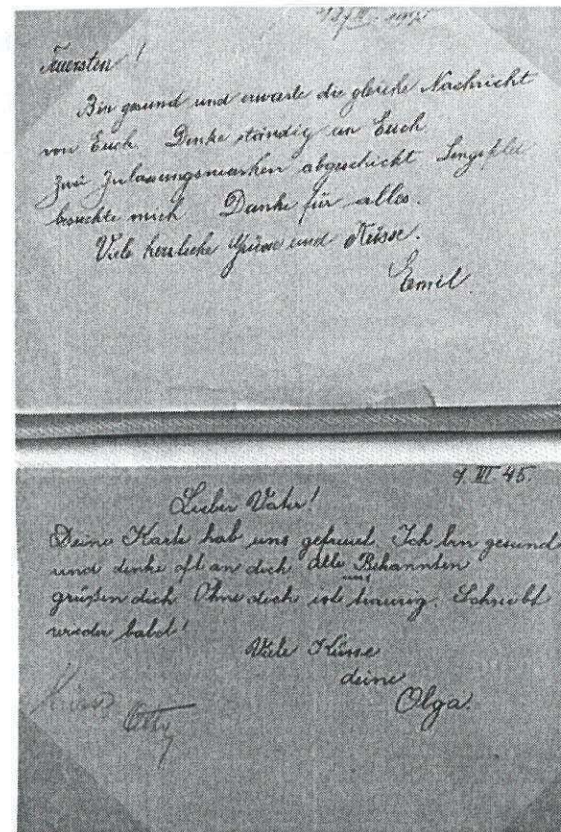 Teuersten!
Bin gesund und erwarte die gleiche Nachricht
von Euch. Denke ständig an Euch
Zwei Zulassungsmarken abgeschickt
besuchte mich Danke für alles.
Viele herzliche Grüsse und Küsse.
Emil.
9. VII 45.
Lieber Vater!
Deine Karte hab uns gefreuet. Ich bin gesund
und denke oft an dich Alle Bekannten
grüßen dich Ohne dich ist uns traurig. Schreibst
wieder babd!
Viele Küsse
deine
Olga.